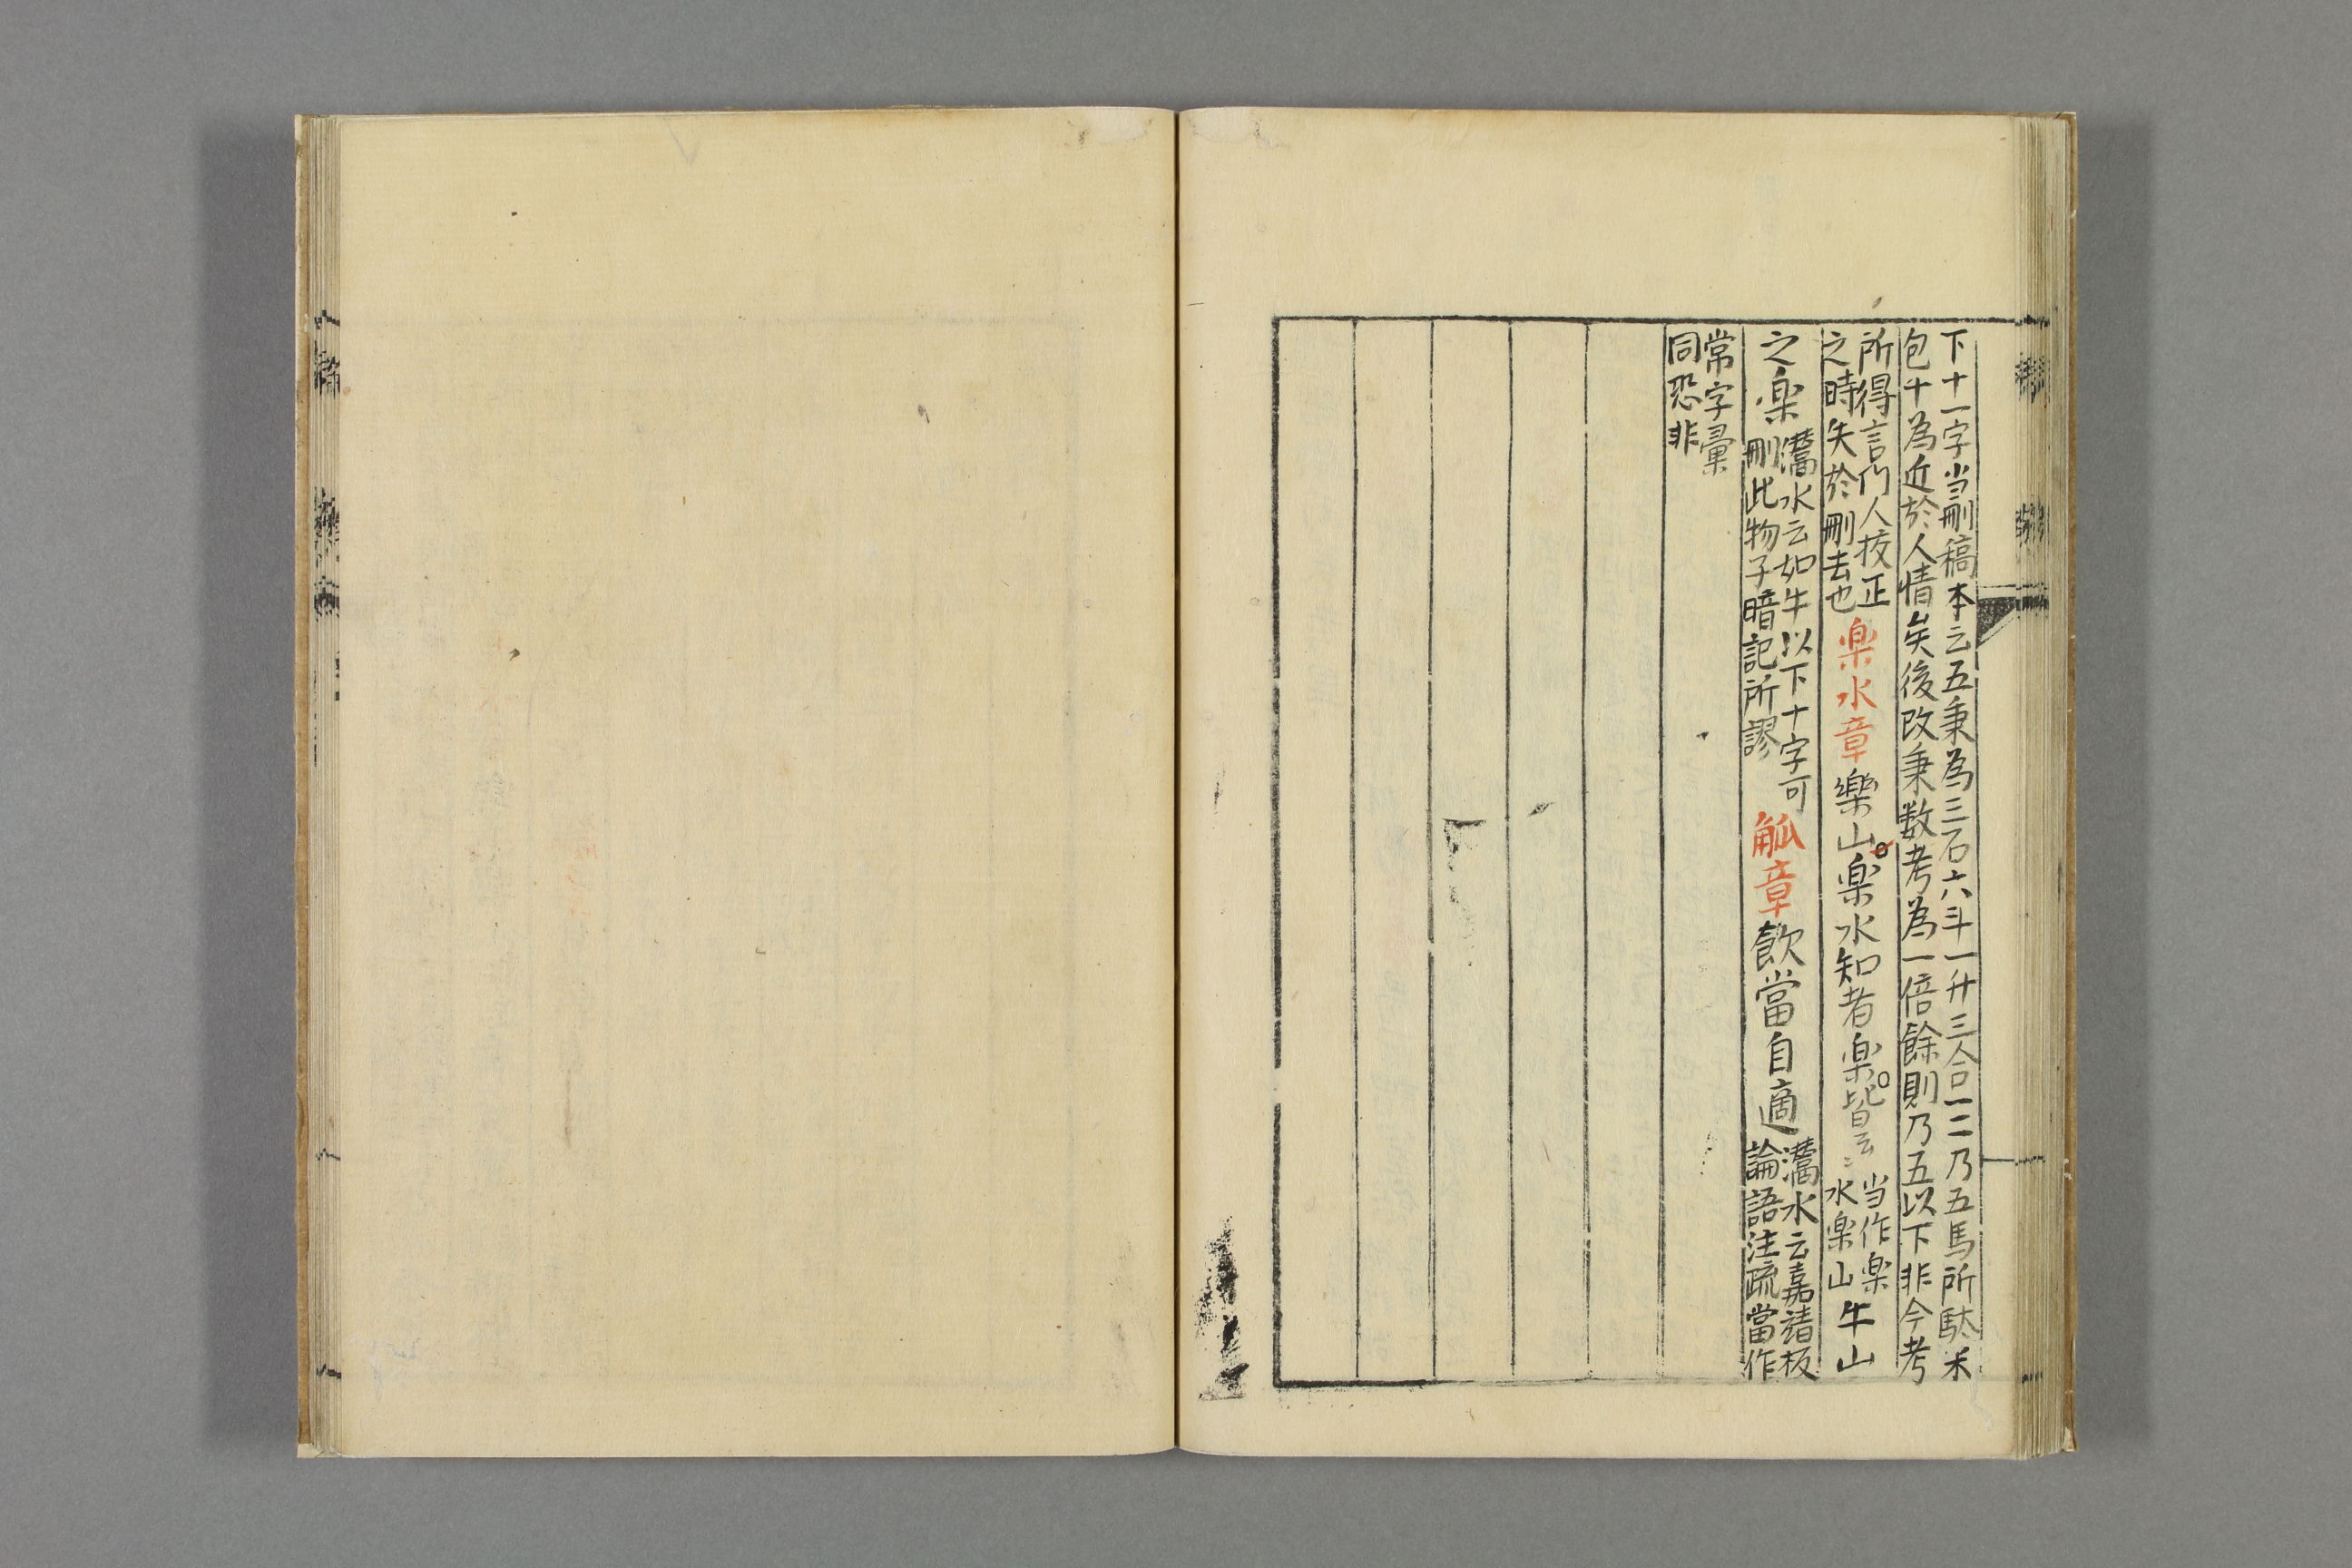 下十一字当刪稿本云五秉為三石六斗一升三合一二乃五馬所駄禾
包十為近於人情矣後改秉数考為一倍餘則乃五以下非今考
所得言們人挍正
之時失於刪去也
楽水章
樂山楽水知者楽皆云
当作楽
水楽山
牛山
之楽
灊水云如牛以下十字可
刪此物子暗記所謬
觚章
飲當自適
灊水云嘉靖板
論語注疏當作
常字彙
同恐非